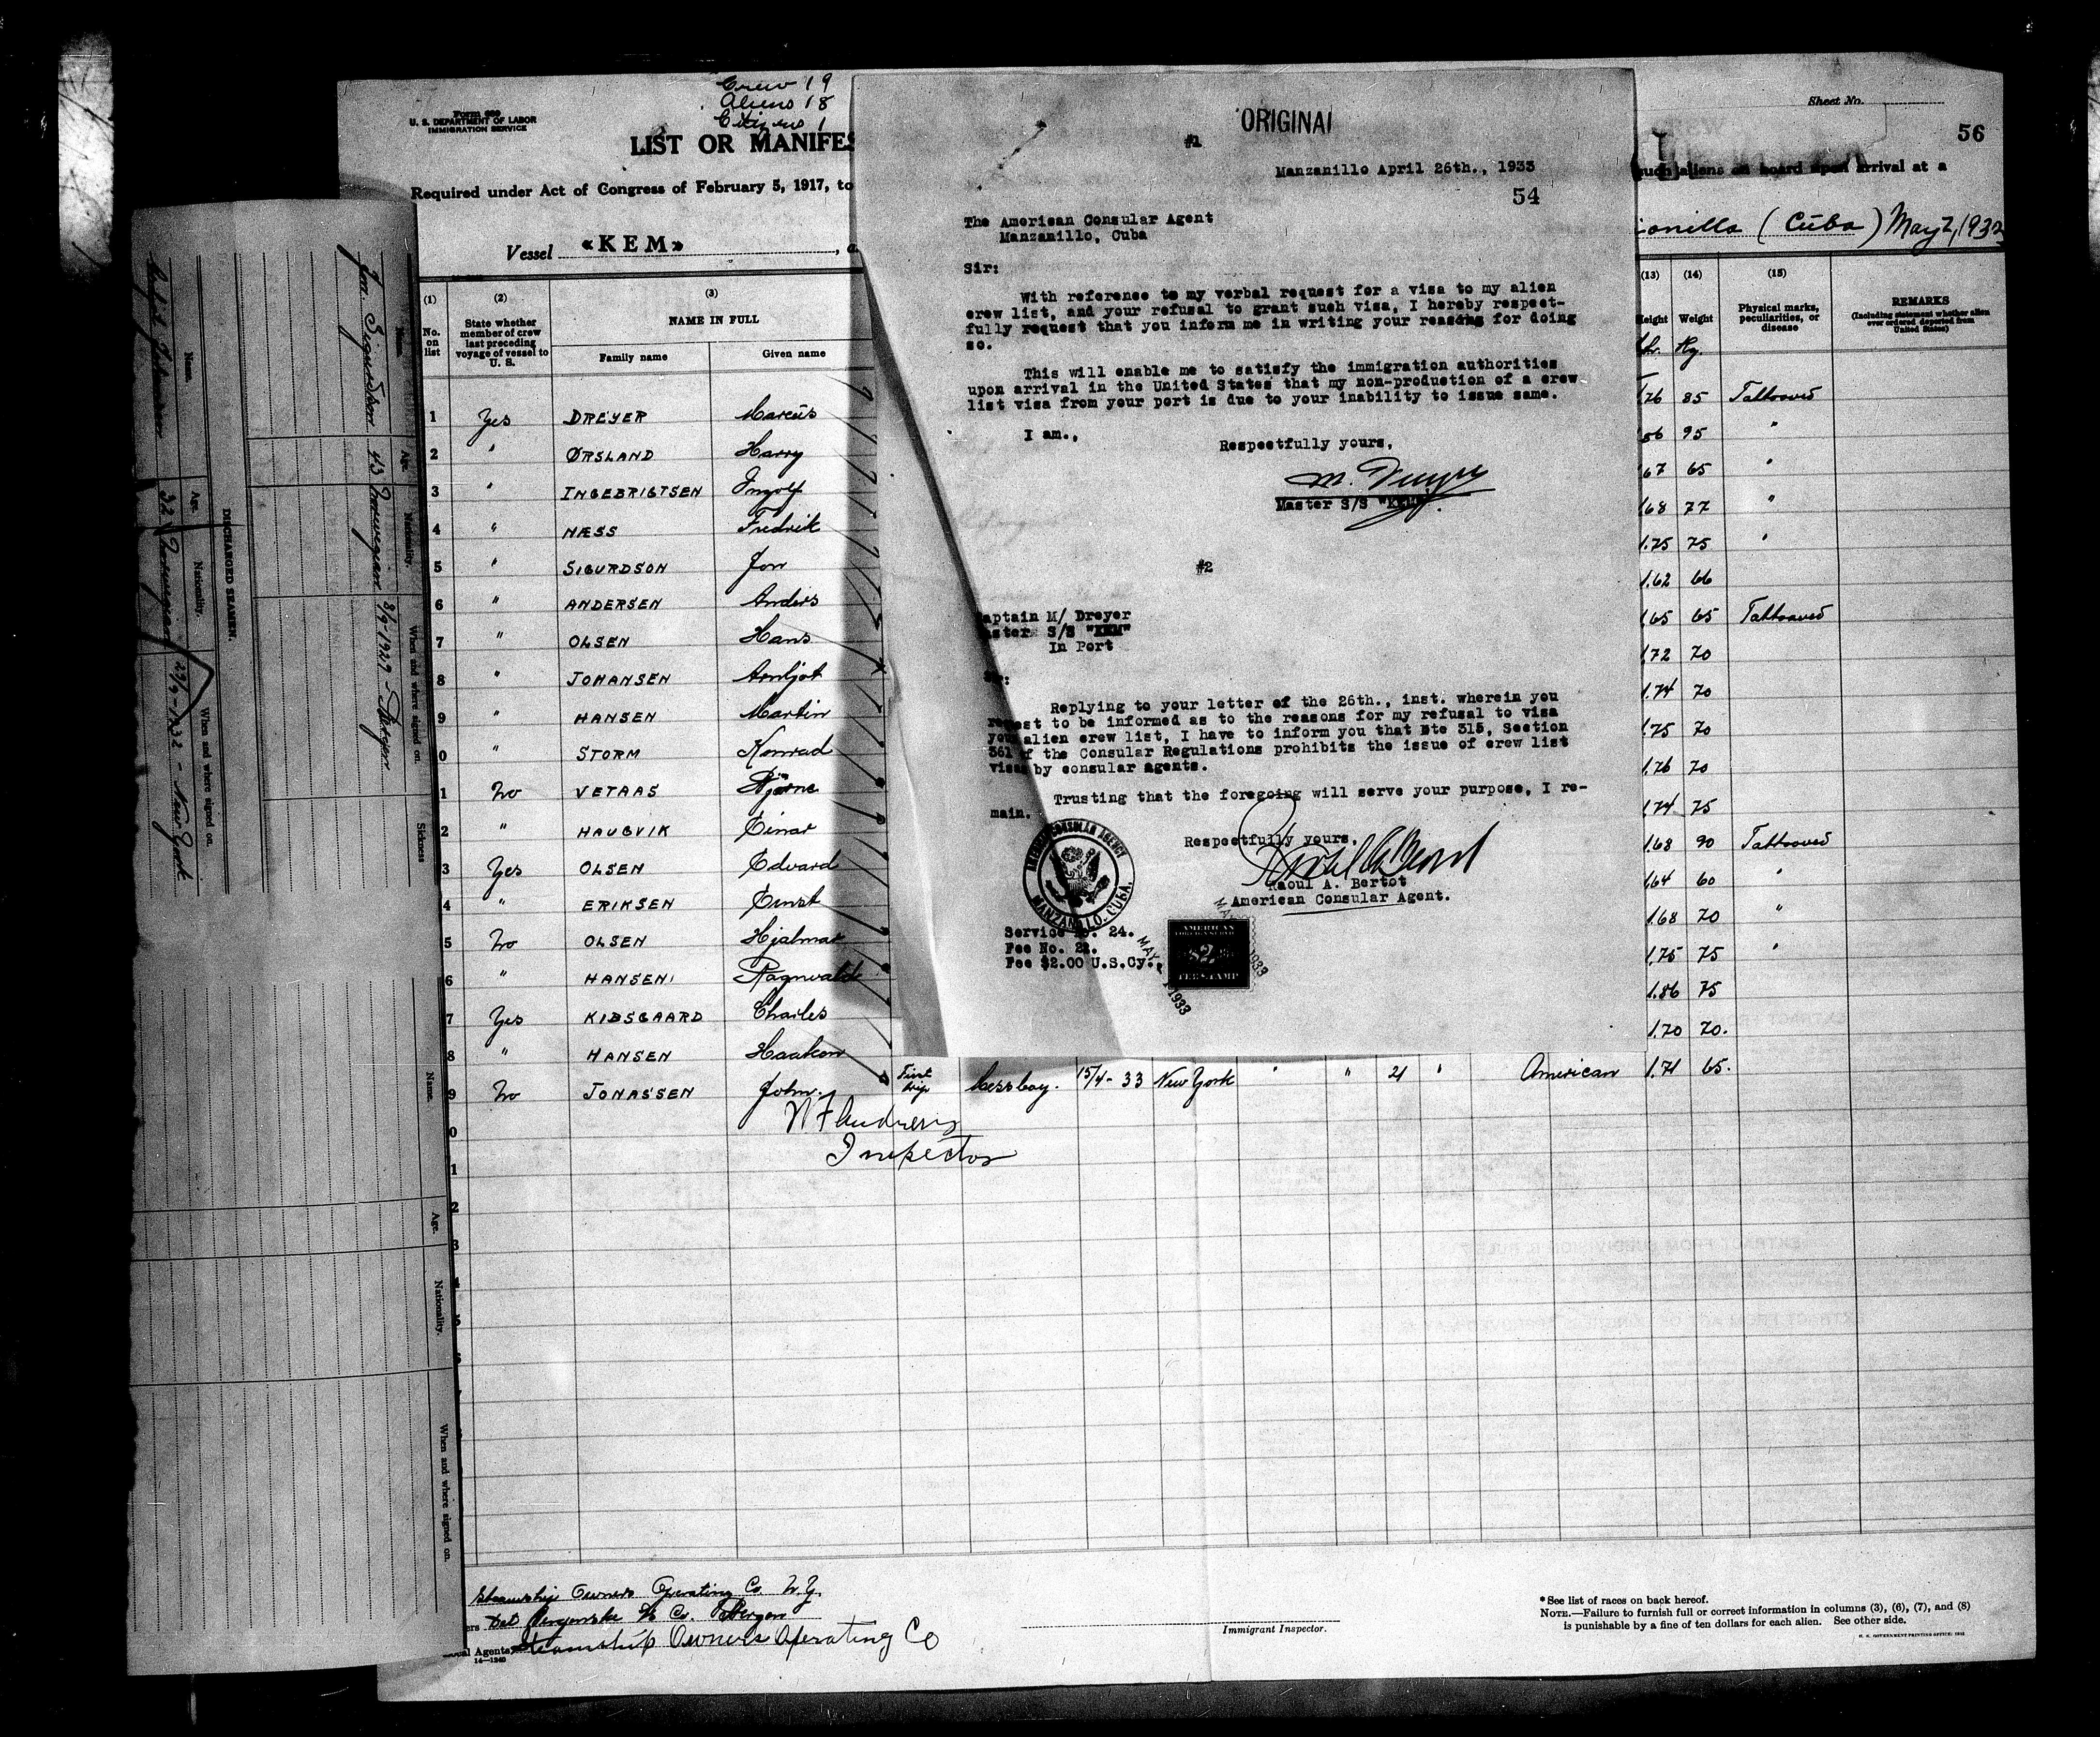 Crew 19
Aliens 18
Citizens 1
U. S. DEPARTMENT OF LABOR
IMMIGRATION SERVICE
LIST OR MANIFES
Required under Act of Congress of February 5, 1917, to
Vessel «KEM»
Sheet No.
56
such aliens on board upon arrival at a
(Cuba) May 2, 1933
(1) No. on list
(2) State whether member of crew last preceding voyage of vessel to U. S.
(3) NAME IN FULL
Family name Given name
(13) Height
(14) Weight
(15) Physical marks, peculiarities, or disease
REMARKS
(Including statement whether alien ever ordered deported from United States)
Kg.
1 Yes DREYER Marcus 1.76 85 Tattooed
2 " ØRSLAND Harry 95 "
3 INGEBRIGTSEN Ingolf 67 65 "
4 " NÆSS Fredrik 68 77 "
5 " SIGURDSON Jon 1.75 75 "
6 " ANDERSEN Anders 1.62 66
7 " OLSEN Hans 1.65 65 Tattooed
8 " JOHANSEN Arnljot 1.72 70
9 " HANSEN Martin 1.74 70
0 " STORM Konrad 1.75 70
1 No VETAAS Bjarne 1.76 70
2 " HAUGVIK Einar 1.74 75
3 Yes OLSEN Edvard 1.68 90 Tattooed
4 " ERIKSEN Ernst 1.64 60 "
5 No OLSEN Hjalmar 1.68 70 "
6 " HANSEN Ragnvald 1.75 75 "
7 Yes KIBSGAARD Charles 1.86 75
8 " HANSEN Haakon 1.70 70.
9 No JONASSEN John. First trip Messboy. 15/4-33 New York " " 21 " American 1.71 65.
0
1
2
3
Inspector
ORIGINAL
#1
Manzanillo April 26th., 1933
54
The American Consular Agent
Manzanillo, Cuba
Sir:
With reference to my verbal request for a visa to my alien
crew list, and your refusal to grant such visa, I hereby respect-
fully request that you inform me in writing your reasons for doing
so.
This will enable me to satisfy the immigration authorities
upon arrival in the United States that my non-production of a crew
list visa from your port is due to your inability to issue same.
I am.,
Respectfully yours,
Master S/S "KEM".
#2
aptain M/ Dreyer
aster S/S "KEM"
In Port
Replying to your letter of the 26th., inst. wherein you
request to be informed as to the reasons for my refusal to visa
your alien crew list, I have to inform you that Nte 315, Section
361 of the Consular Regulations prohibits the issue of crew list
visas by consular agents.
Trusting that the foregoing will serve your purpose, I re-
main.
Respectfully yours,
Raoul A. Bertot
American Consular Agent.
AMERICAN CONSULAR AGENCY
MANZANILLO, CUBA.
Service No. 24.
Fee No. 22.
Fee $2.00 U.S.Cy.,
AMERICAN
FOREIGN SERVICE
$2
FEE STAMP
1933
1933
Steamship Owners Operating Co. N.Y.
Det Bergenske Co. Bergen
Local Agents Steamship Owners Operating Co
14—1240
Immigrant Inspector.
* See list of races on back hereof.
NOTE.—Failure to furnish full or correct information in columns (3), (6), (7), and (8)
is punishable by a fine of ten dollars for each alien. See other side.
U. S. GOVERNMENT PRINTING OFFICE: 1932
DISCHARGED SEAMEN.
Name. Age. Nationality. When and where signed on.
32 Norwegian 1932 - New York
Name. Age. Nationality. When and where signed on. Sickness
Jon. Sigurdson 43 Norwegian 8/9-1929
Name. Age. Nationality. When and where signed on.